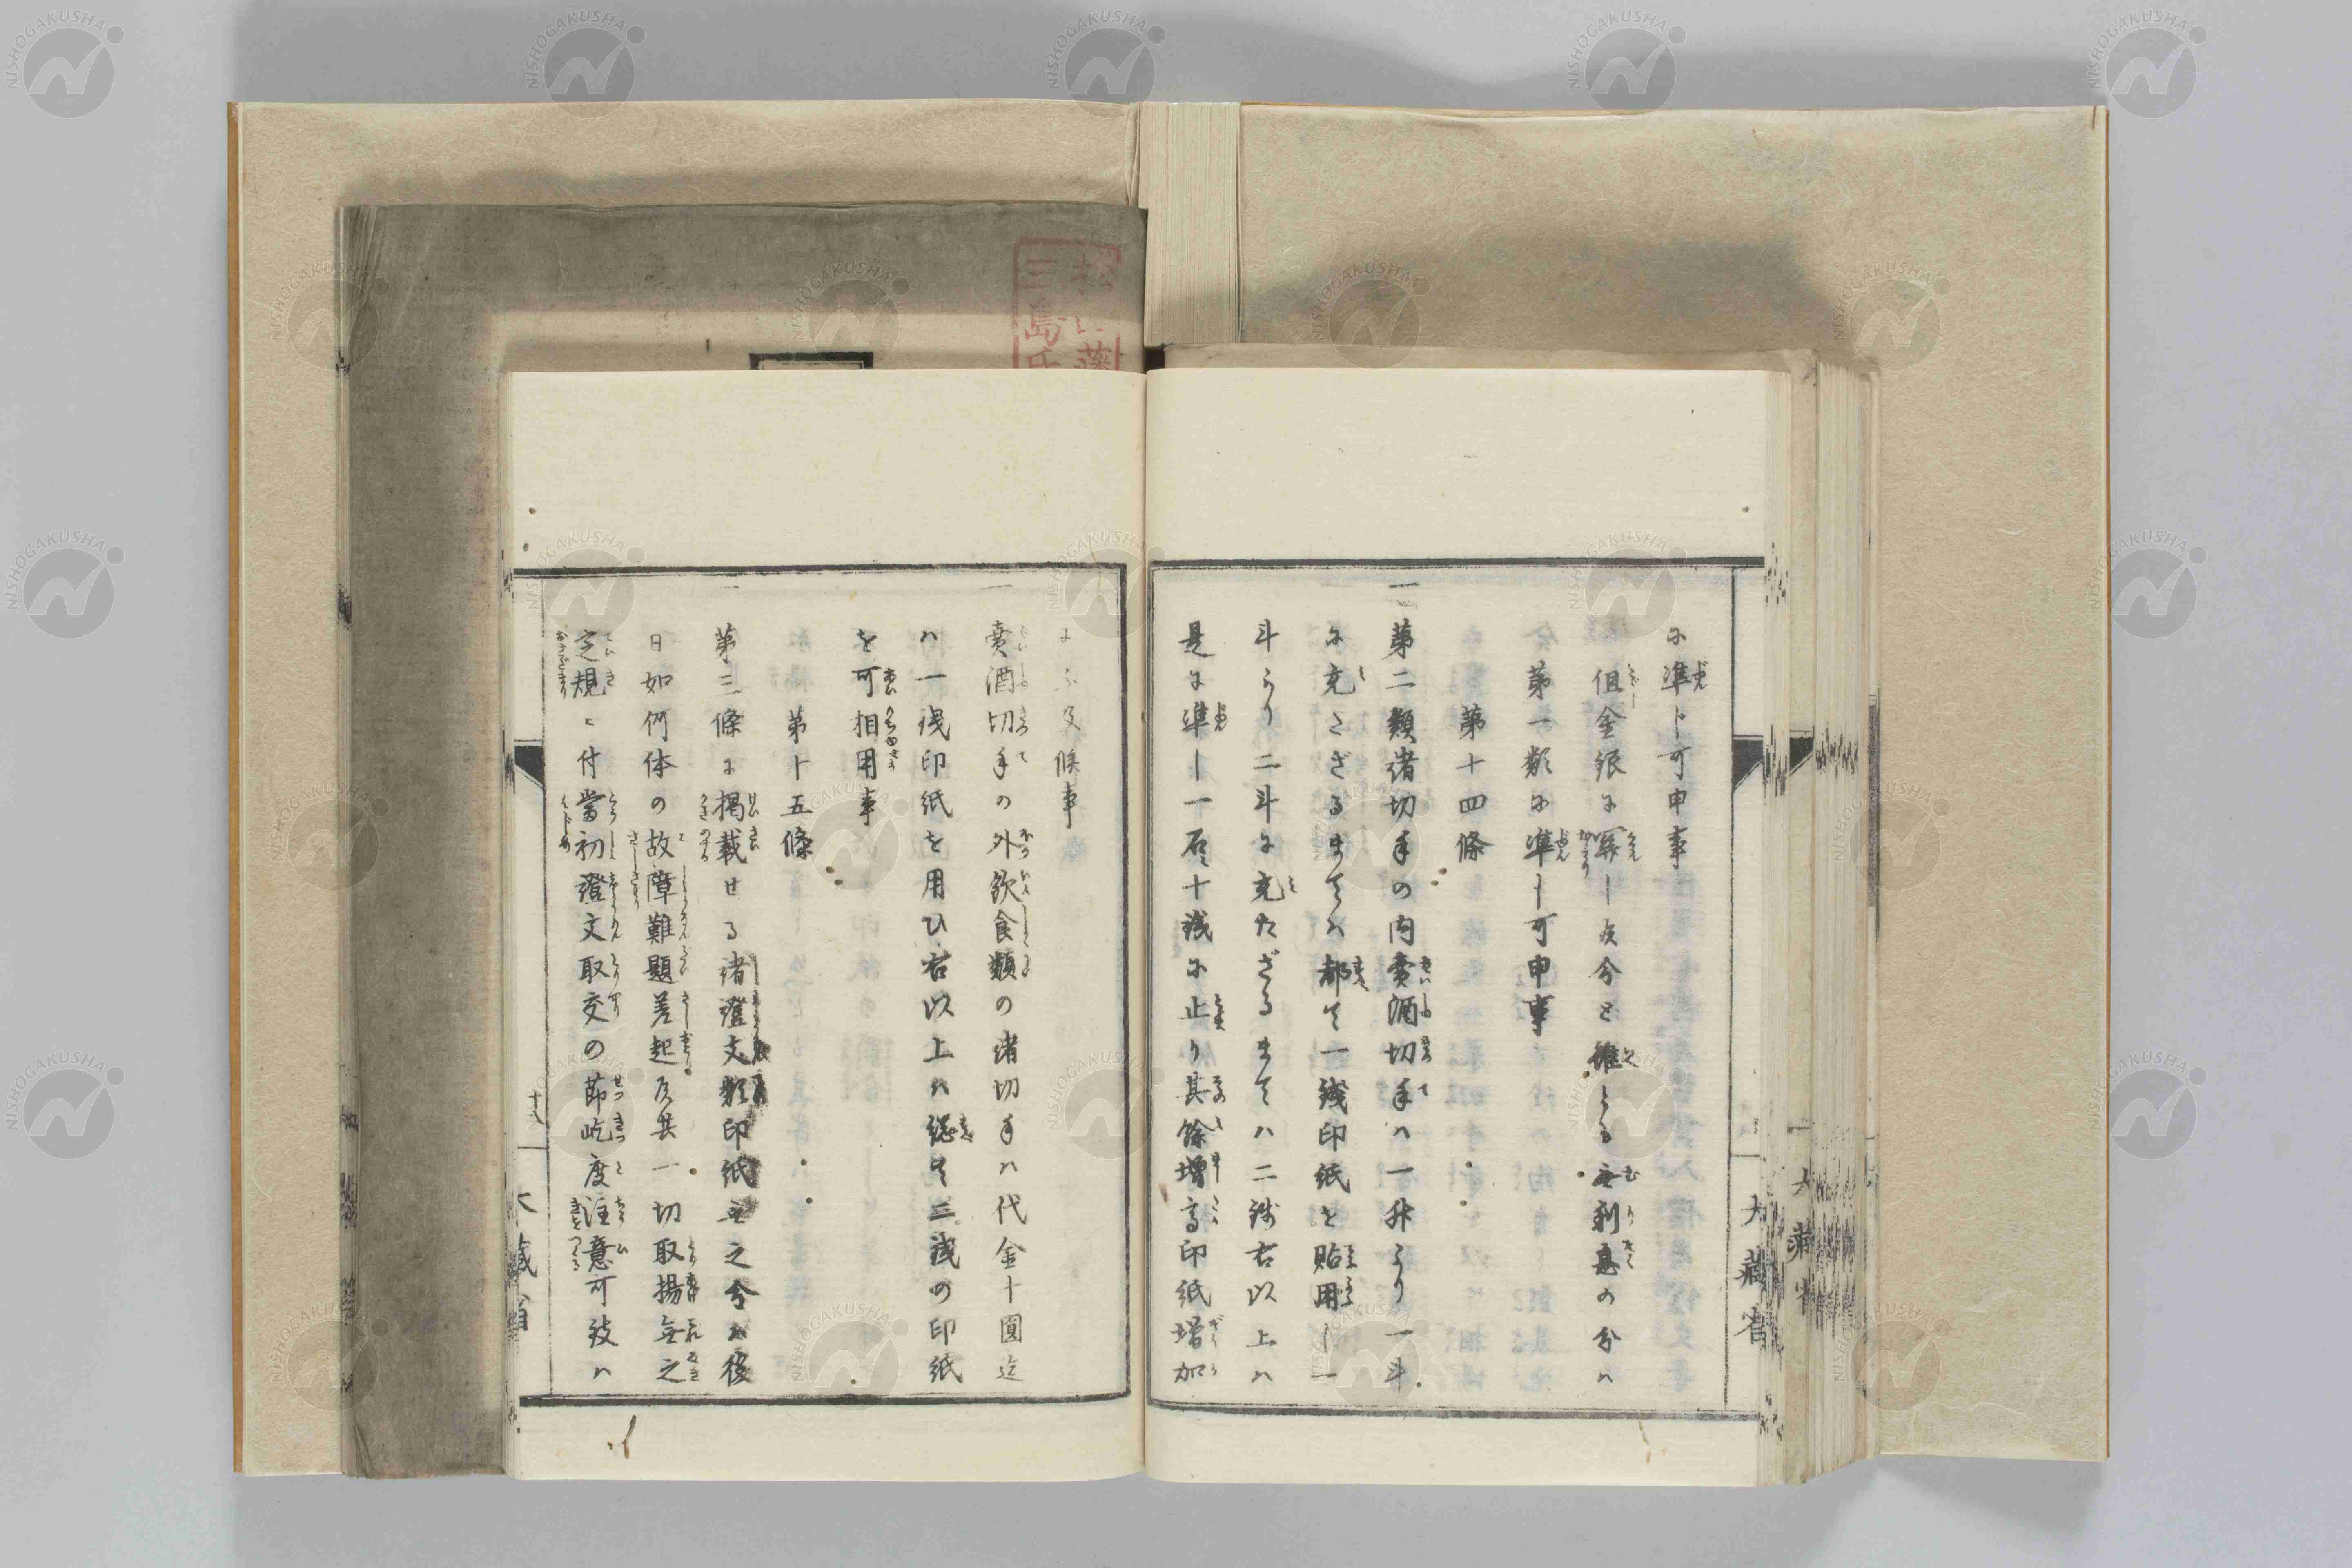 に準じ可申事
但金銀に算し候分と雖とも無利息の分ハ
第一類に準し可申事
第十四條
一
第二類諸切手の内賣酒切手ハ一升より一斗
に充たざるまてハ都て一錢印紙を貼用し一
斗より二斗に充たざるまてハ二錢右以上ハ
是に準し一石十錢に止り其餘増高印紙増加
大藏省
に不及候事
一
賣酒切手の外飲食類の諸切手ハ代金十圓迄
ハ一錢印紙を用ひ右以上ハ總て三錢の印紙
を可相用事
第十五條
一
第三條に掲載せる諸證文類印紙無之分ハ後
日如何体の故障難題差起候共一切取揚無之
定規に付當初證文取交の節屹度注意可致ハ
大藏省
三島氏
NISHOGAKUSHA